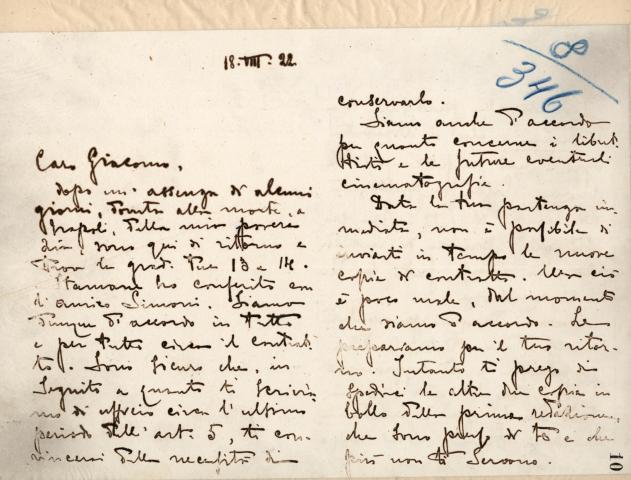 18.VIII.22.
8
346
Caro Giacomo,
dopo un' assenza di alcuni
giorni, dovuta alla morte, a
Napoli, della mia povera
zia, sono qui di ritorno e
trovo le grad. tue 13 e 14.
Stamane ho conferito con
l'amico Simoni. Siamo
dunque d'accordo in tutto
e per tutto circa il contrat-
to. Sono sicuro che, in
seguito a quanto ti scrivia-
mo di ufficio circa l'ultimo
periodo dell'art. 5, ti con-
vincerai della necessità di
conservarlo.
Siamo anche d'accordo
per quanto concerne i libret-
tisti e le future eventuali
cinematografie.
Data la tua partenza im-
mediata, non è possibile di
inviarti in tempo le nuove
copie di contratto. Ma ciò
è poco male, dal momento
che siamo d'accordo. Le
prepariamo per il tuo ritor-
no. Intanto ti prego di
spedirci le altre due copie in
bollo della prima redazione,
che sono presso di te e che
più non ti servono.
10